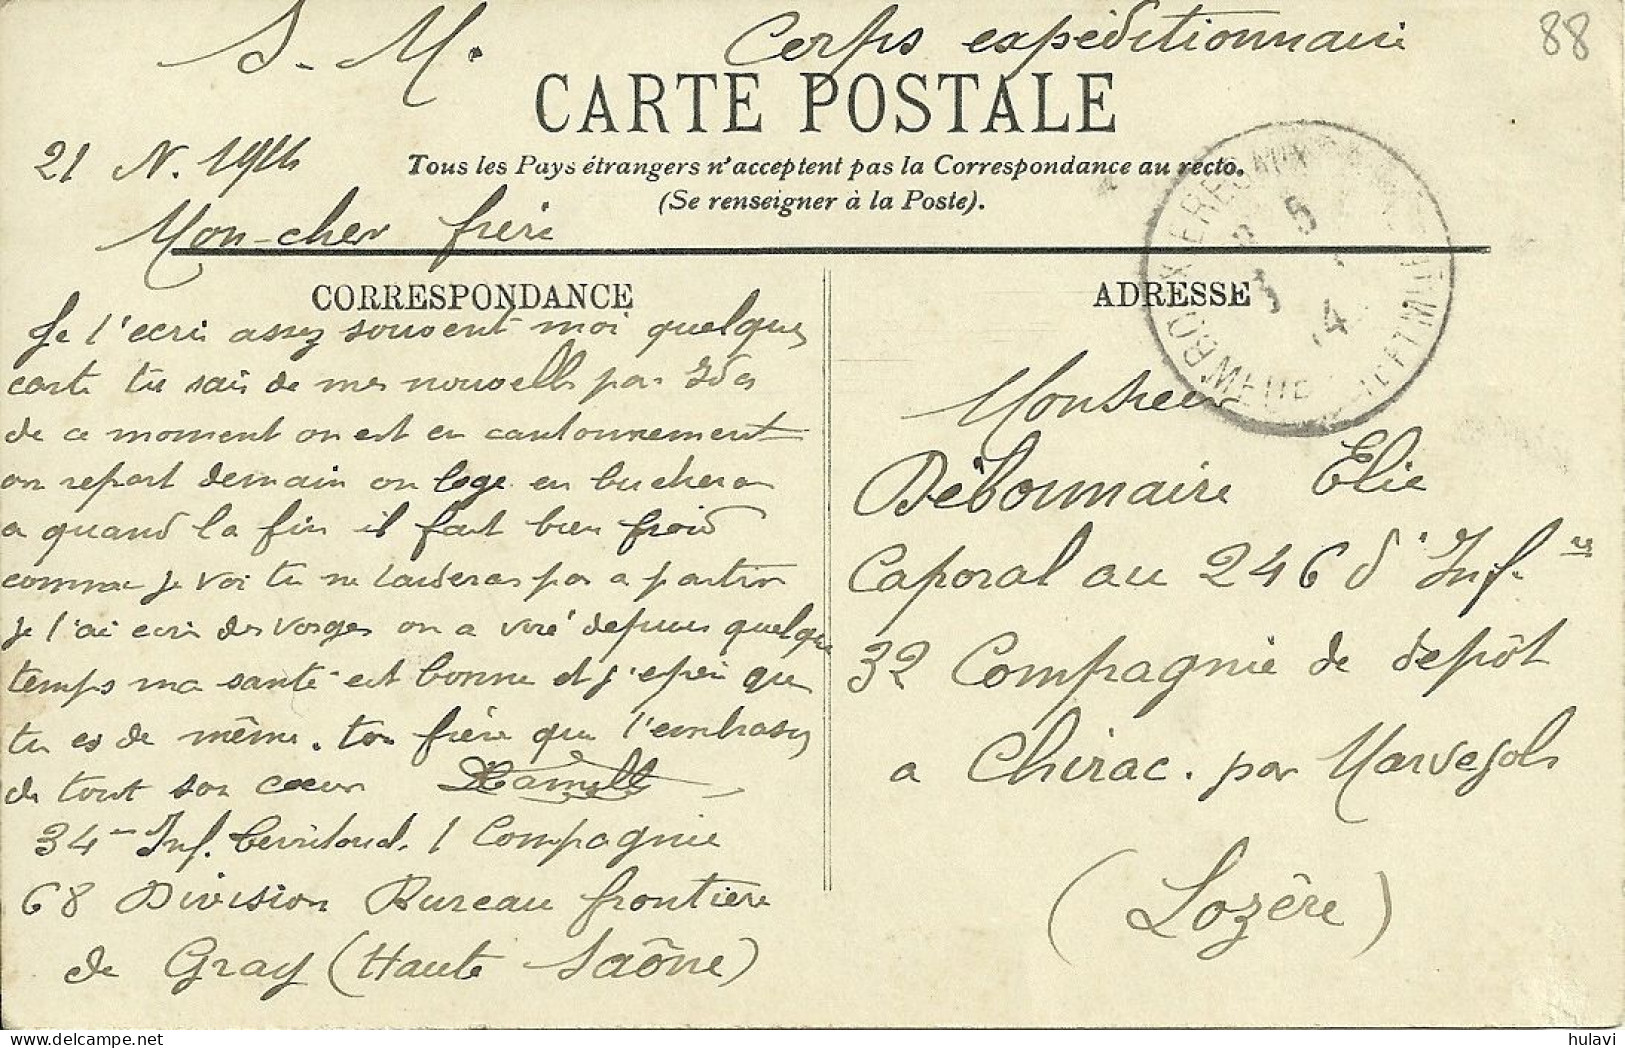 S. M. Corps expéditionnaire 88
CARTE POSTALE
21 N. 1914
Tous les Pays étrangers n'acceptent pas la Correspondance au recto.
(Se renseigner à la Poste).
Mon-cher frère
CORRESPONDANCE
Je l'ecris assez souvent moi quelques
carte tu sais de mes nouvelles par
de ce moment on est en cantonnement
on repart demain on loge en bucheron
a quand la fin il fait bien froid
comme je voi tu ne tarderas pas a partir
je l'ai ecris des vosges on a viré depuis quelque
temps ma santé est bonne et j'espère que
tu es de même. ton frère qui l'embrasse
de tout son cœur
34 Inf. territorial. 1 Compagnie
68 Division Bureau frontiere
de Gray (Haute Saône)
ADRESSE
Monsieur
Débonnaire Elie
Caporal au 246 d'Inf.ie
32 Compagnie de depôt
a Chirac. par Marvejols
(Lozère)
hulavi